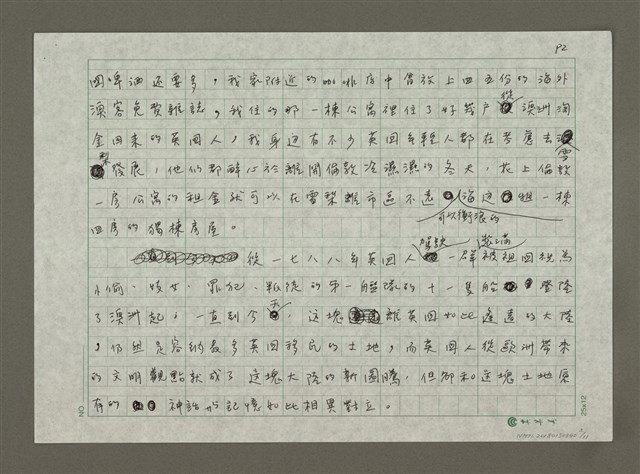 P2
國啤酒还要多，我家附近的咖啡店中當放上四五份的海外
澳客免費雜誌，我住的那一棟公寓裡住了好幾戶從澳洲淘
金回來的英国人，我身边有不少英国年輕人都在考慮去雪
梨發展，他們都醉心於離開倫敦冷濕濕的冬天，花上倫敦
一房公寓的租金就可以在雪梨離市区不遠可以衝浪的海边租一棟
四房的獨棟房屋。
從一七八八年英国人駕駛裝滿一群被祖国視為
小偷、妓女、罪犯、叛徒的第一艦隊的十一隻船登陸
了澳洲起，一直到今天，這塊離英国如此遙遠的大陸
，仍然是容納最多英国移民的土地，而英国人從歐洲帶來
的文明觀點就成了這塊大陸的新圖騰，但卻和這塊土地原
有的神話與記憶如此相異對立。
NO.
25x12